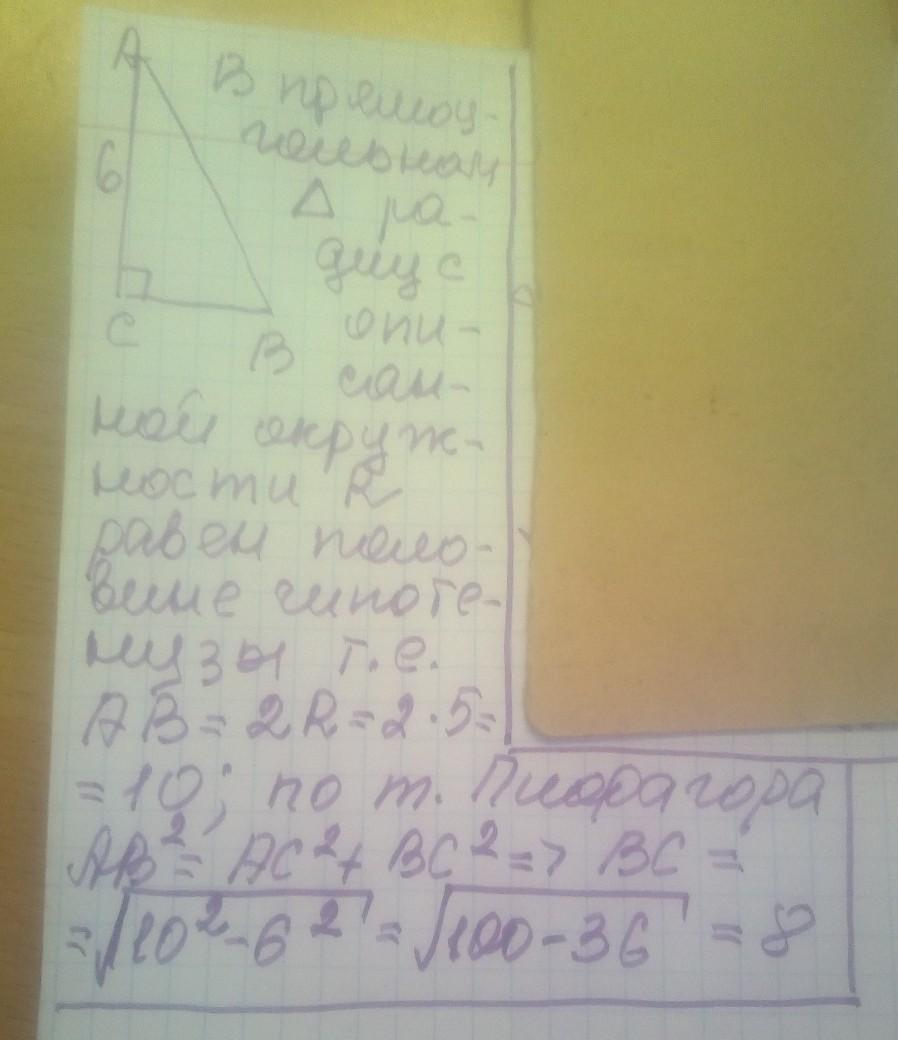 A
В прямоу-
гольном
6
Δ ра-
диус
C
опи-
B
сан-
ной окруж-
ности R
равен поло-
вине гипоте-
нузы т.е.
AB = 2R = 2·5 =
= 10; по т. Пифагора
AB² = AC² + BC² => BC =
= √10² - 6² = √100 - 36 = 8